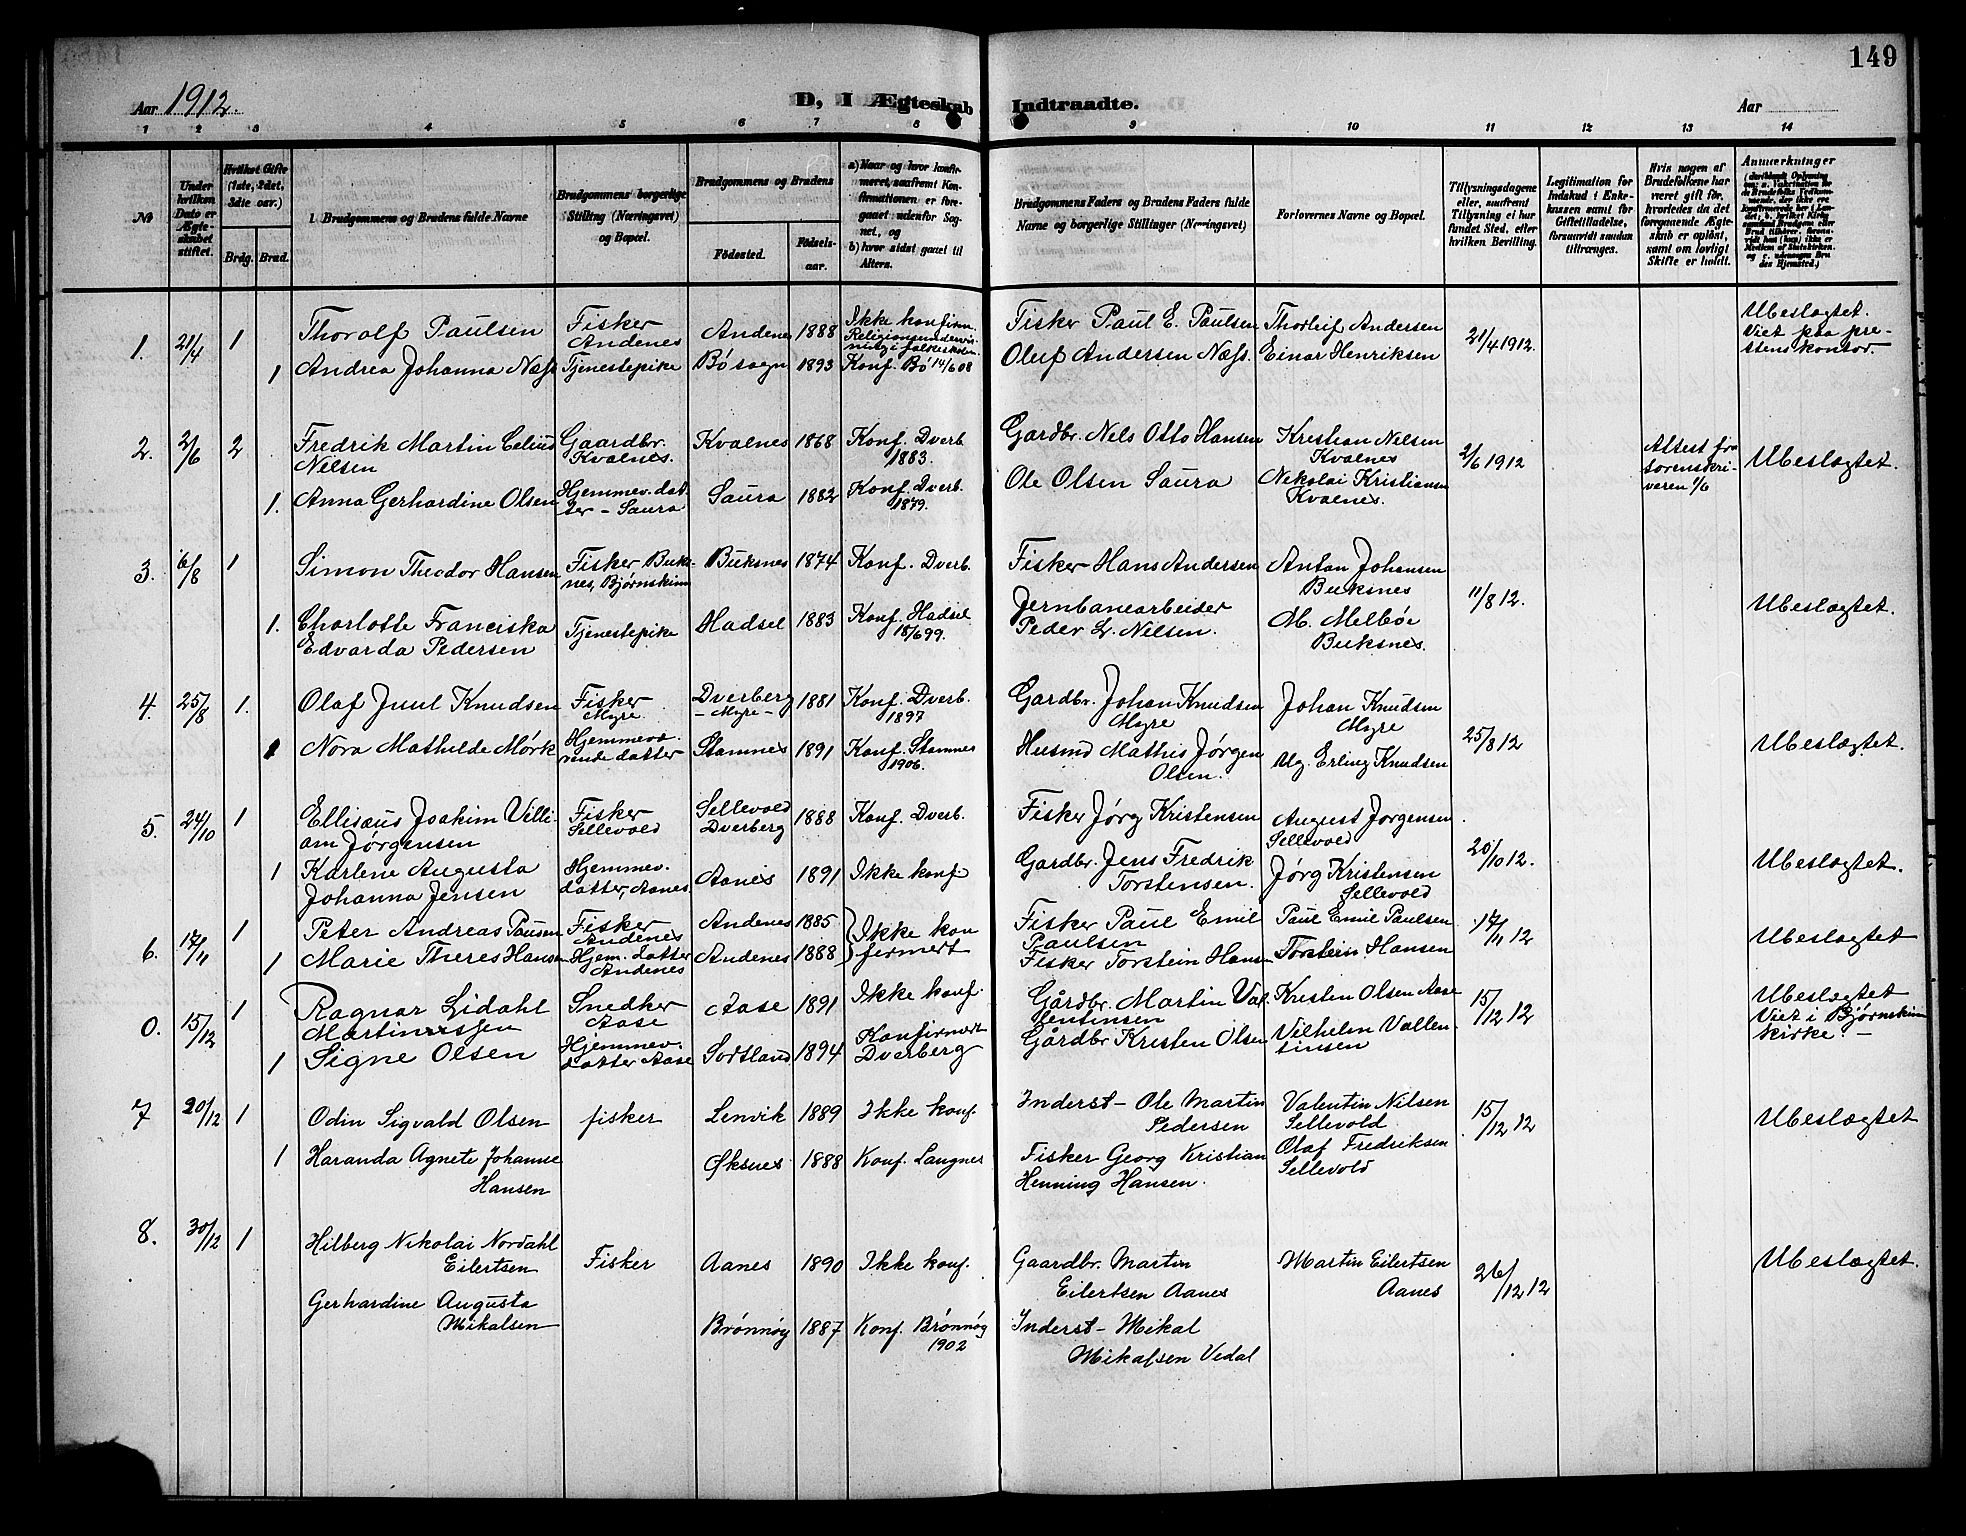 149
Aar 1912.
D, I Ægteskab Indtraadte.
Aar
1 2 3 4 5 6 7 8 9 10 11 12 13 14
№
Under hvilken Dato er Ægteskabet stiftet.
Hvilket Gifte (1ste, 2det, 3die osv.)
Brdg. Brud.
Brudgommens og Brudens fulde Navne
Brudgommens borgerlige Stilling (Næringsvei) og Bopæl.
Brudgommens og Brudens
Fødested.
Fødselsaar.
a) Naar og hvor konfirmeret, saafremt Konfirmationen er foregaaet udenfor Sognet, og
b) hvor sidst gaaet til Alters.
Brudgommens Faders og Brudens Faders fulde Navne og borgerlige Stillinger (Næringsvei)
Forlovernes Navne og Bopæl.
Tillysningsdagene eller, saafremt Tillysning ei har fundet Sted, efter hvilken Bevilling.
Legitimation for Indskud i Enkekassen samt for Giftetilladelse, forsaavidt saadan tiltrænges.
Hvis nogen af Brudefolkene har været gift før, hvorledes da det foregaaende Ægteskab er opløst, samt om lovligt Skifte er holdt.
Anmærkninger
1. 21/4 1 Thoralf Paulsen Fisker Andenes Andenes 1888 Ikke konfirm. Religionsundervisning i folkeskolen. Fisker Paul E. Paulsen Thorleif Andersen 21/4 1912. Ubeslægtet. Viet paa prestens kontor.
1 Andrea Johanna Næss Tjenestepike Bø sogn 1893 Konf. Bø 14/6 08 Oluf Andersen Næss. Einar Henriksen
2. 2/6 2 Fredrik Martin Celius Nilsen Gaardbr. Kvalnes. Kvalnes 1868 Konf. Dverb. 1883. Gardbr. Nels Otto Hansen Kristian Nilsen Kvalnes 2/6 1912 Attest fra sorenskriveren 1/6 Ubeslægtet.
1. Anna Gerhardine Olsen Hjemmev. datter - Saura Saura 1882 Konf. Dverb. 1879. Ole Olsen Saura Nikolai Kristiansen Kvalnes.
3. 16/8 1 Simon Theodor Hansen Fisker Buksnes, Bjørnskinn Buksnes 1874 Konf. Dverb. Fisker Hans Andersen Anton Johansen Buksnes 11/8 12. Ubeslægtet.
1. Charlotte Franciska Edvarda Pedersen Tjenestepike Hadsel 1883 Konf. Hadsel 18/6 99. Jernbanearbeider Peder L. Nilsen. M. Melbøe Buksnes.
4. 25/8 1. Olaf Juul Knudsen Fisker Myre. Dverberg - Myre - 1881 Konf. Dverb. 1897 Gardbr. Johan Knudsen Myre Johan Knudsen Myre 25/8 12 Ubeslægtet.
1 Nora Mathilde Mørk Hjemmeværende datter Stamnes 1891 Konf. Stamnes 1906. Husmd Mathis Jørgen Olsen. Ug. Erling Knudsen
5. 24/10 1 Ellisæus Joakim Villiam Jørgensen Fisker Sellevold Sellevold Dverberg 1888 Konf. Dverb. Fisker Jørg Kristensen August Jørgensen Sellevold 20/10 12. Ubeslægtet.
1 Karlene Augusta Johanna Jensen Hjemmev. datter, Aanes Aanes 1891 Ikke konf. Gardbr. Jens Fredrik Torstensen. Jørg Kristensen Sellevold
6. 17/11 1 Peter Andreas Pausen Fisker Andenes Andenes 1885 Ikke konfirmert Fisker Paul Emil Paulsen Paul Emil Paulsen 17/11 12 Ubeslægtet
1 Marie Theres Hansen Hjem. datter Andenes Andenes 1888 Fisker Torstein Hansen Torstein Hansen
0. 15/12 1 Ragnar Lidahl Martinussen Snedker Aase Aase 1891 Ikke konf. Gårdbr. Martin Valentinsen Kristen Olsen Aase 15/12 12 Ubeslægtet Viet i Bjørnskinn kirke. -
1 Signe Olsen Hjemmev. datter Aase Sortland 1894 Konfirmert Dverberg Gårdbr Kristen Olsen Vilhelm Vallentinsen
7 20/12 1 Odin Sigvald Olsen fisker Lenvik 1889 Ikke konf. Inderst - Ole Martin Pedersen Valentin Nilsen Sellevold 15/12 12 Ubeslægtet
1 Haranda Agnete Johanne Hansen Øksnes 1888 Konf. Langnes Fisker Georg Kristian Henning Hansen. Olaf Fredriksen Sellevold
8. 30/12 1 Hilberg Nikolai Nordahl Eilertsen Fisker Aanes 1890 Ikke konf. Gaardbr. Martin Eilertsen Aanes Martin Eilertsen Aanes 26/12 12 Ubeslægtet.
Gerhardine Augusta Mikalsen Brønnøy 1887 Konf. Brønnøy 1902 Inderst - Mikal Mikalsen Vedal